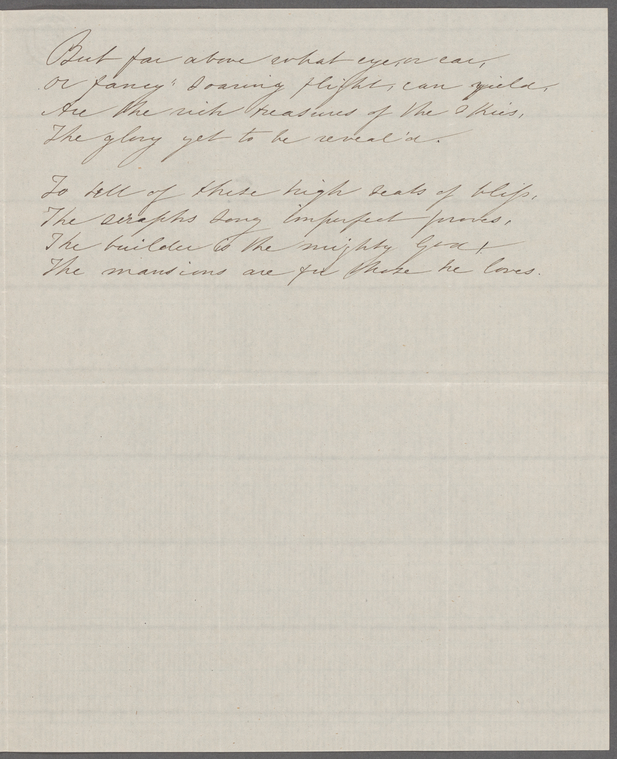 But far above what eye, or ear,
Or fancy's soaring flight, can yield,
Are the rich treasures of the Skies,
The glory yet to be reveal'd.
To tell of these high seats of bliss,
The seraphs song imperfect proves,
The builder is the mighty God!
The mansions are for those he loves.